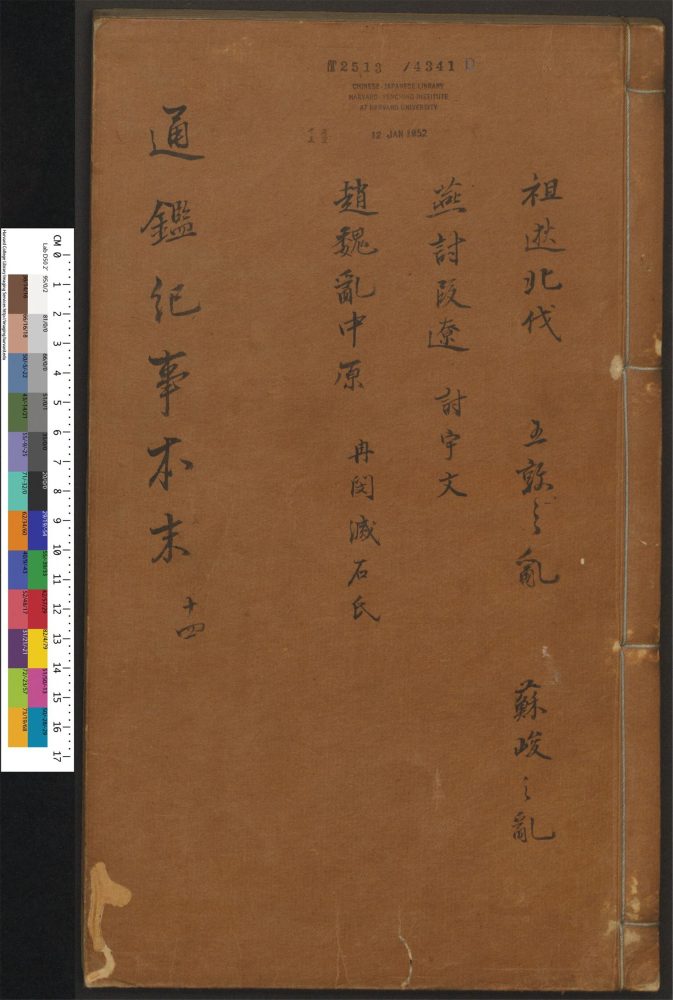 T2513 /4341 D
CHINESE-JAPANESE LIBRARY
HARVARD-YENCHING INSTITUTE
AT HARVARD UNIVERSITY
12 JAN 1952
祖逖北伐 王敦之亂 蘇峻之亂
燕討段遼 討宇文
趙魏亂中原 冉閔滅石氏
通鑑紀事本末 十四
CM 0 1 2 3 4 5 6 7 8 9 10 11 12 13 14 15 16 17